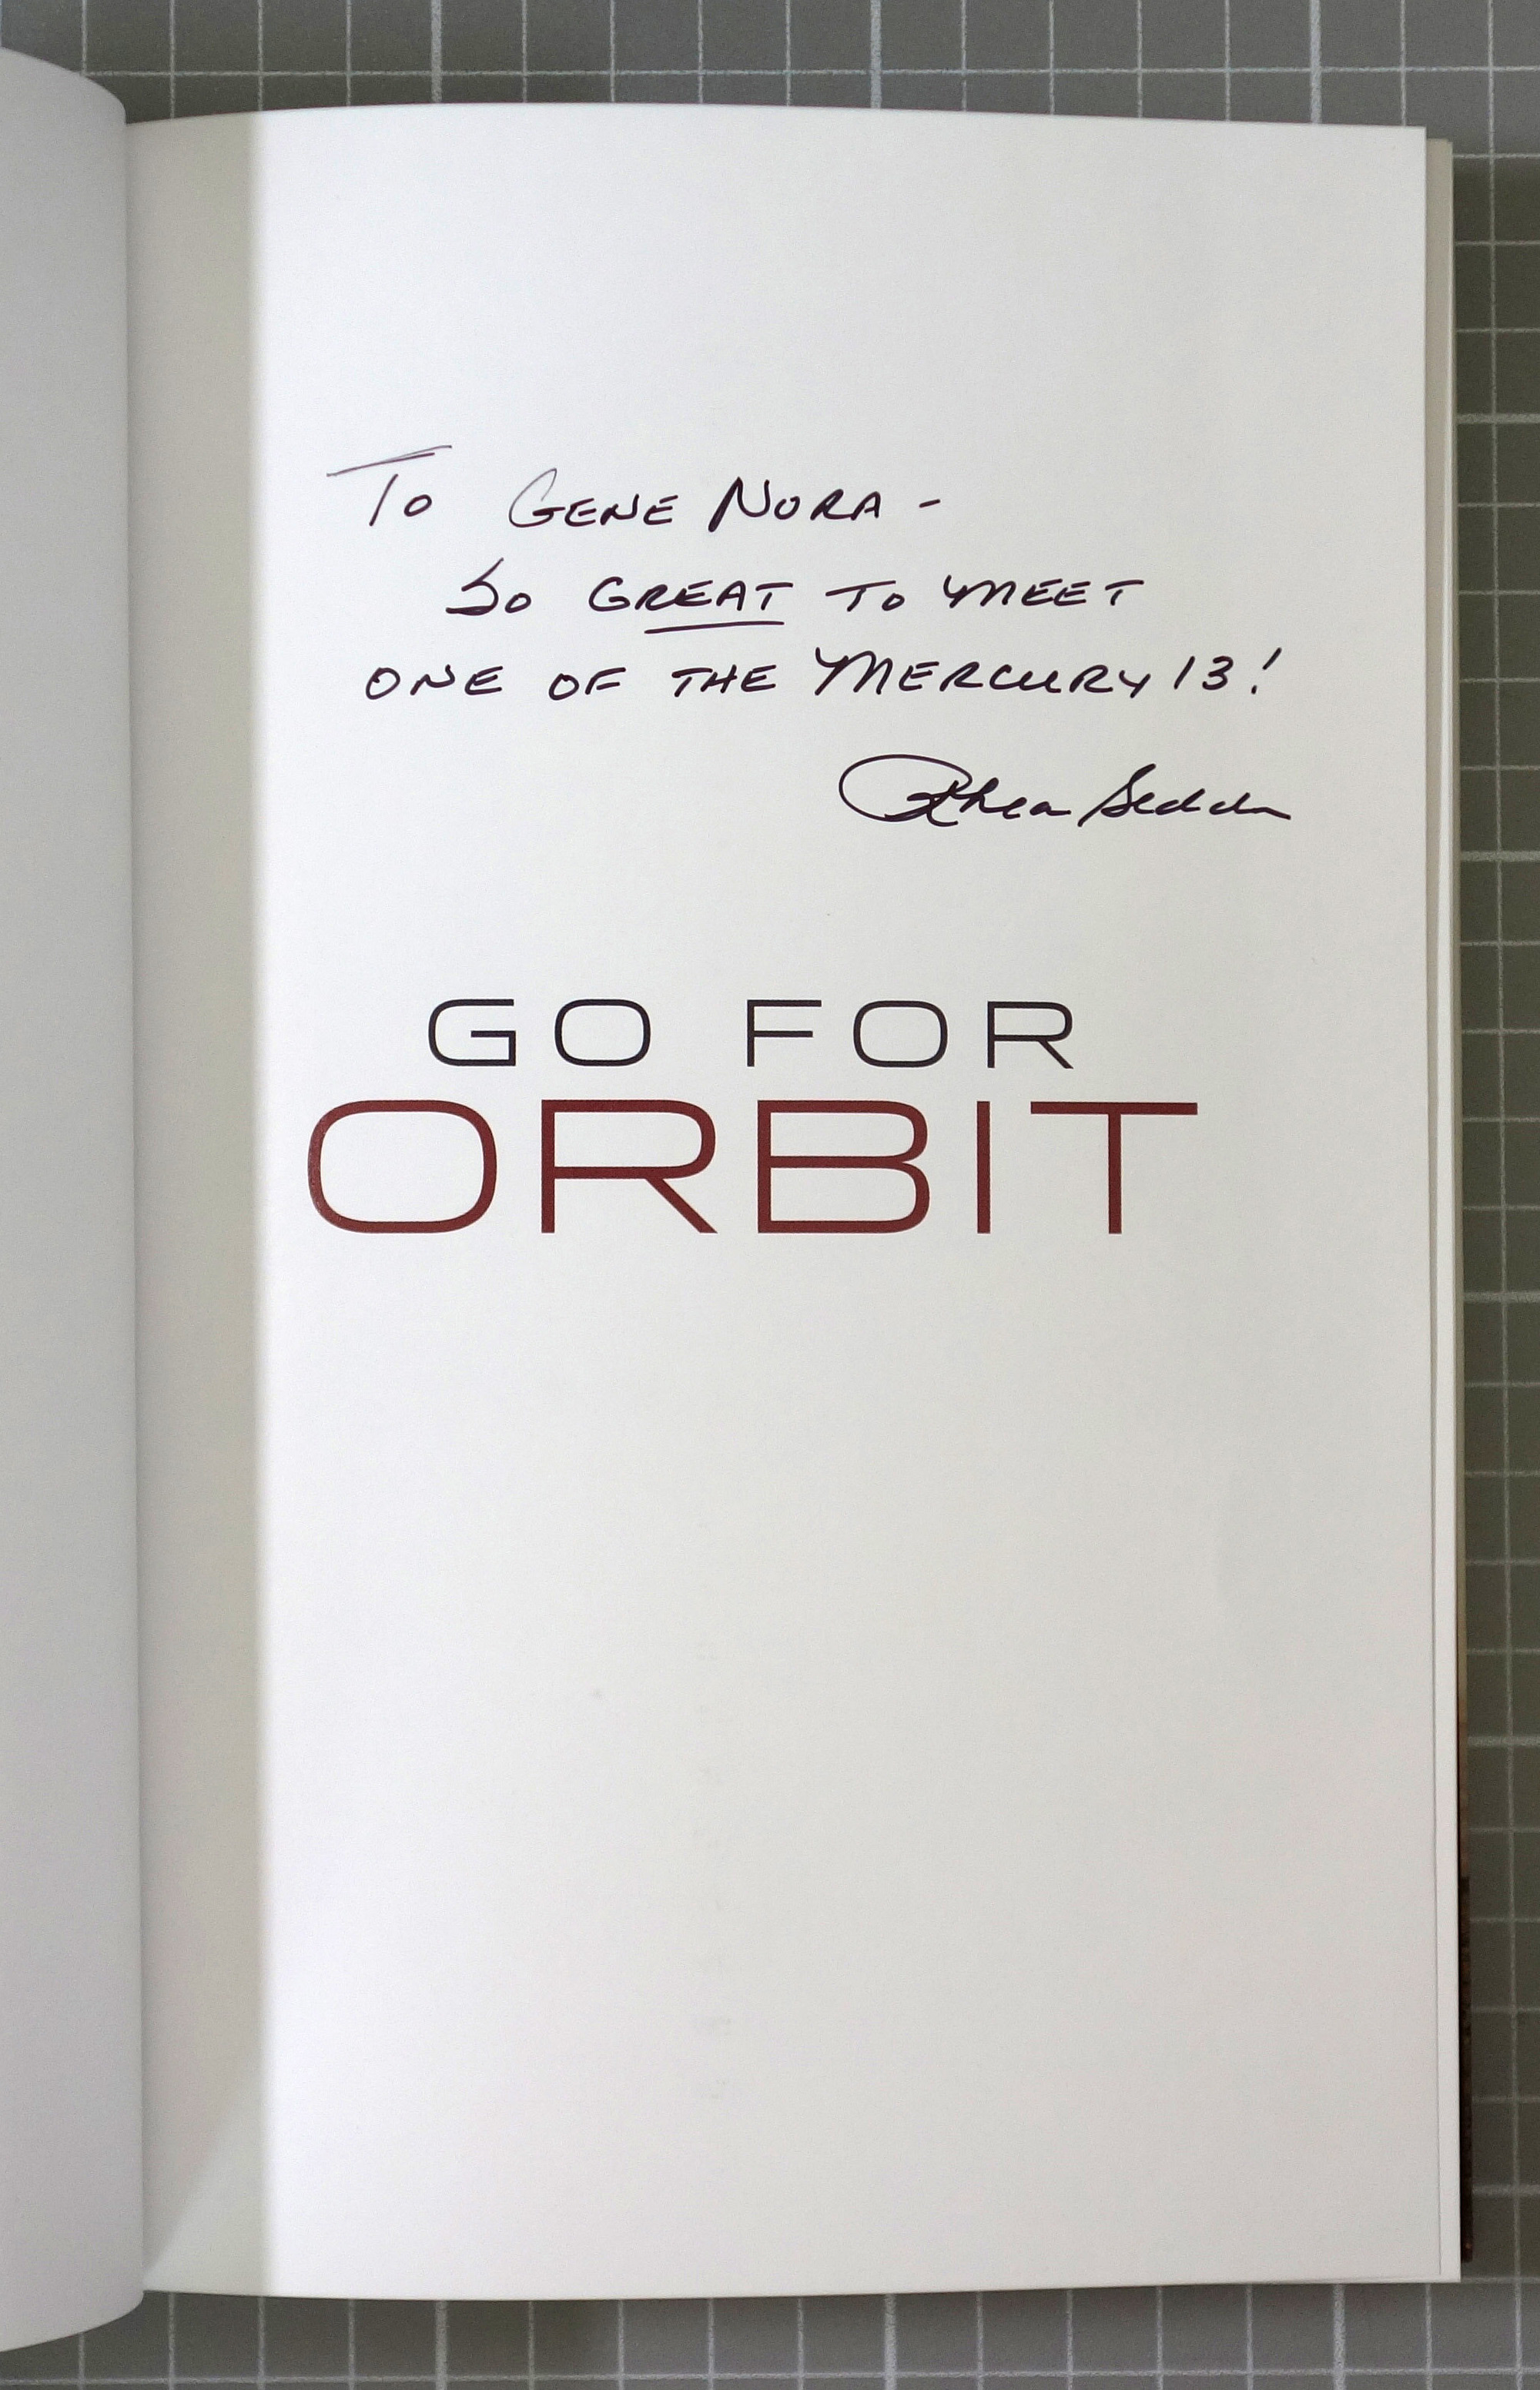 To GENE NORA -
SO GREAT TO MEET
ONE OF THE MERCURY 13!
Rhea Seddon
GO FOR
ORBIT